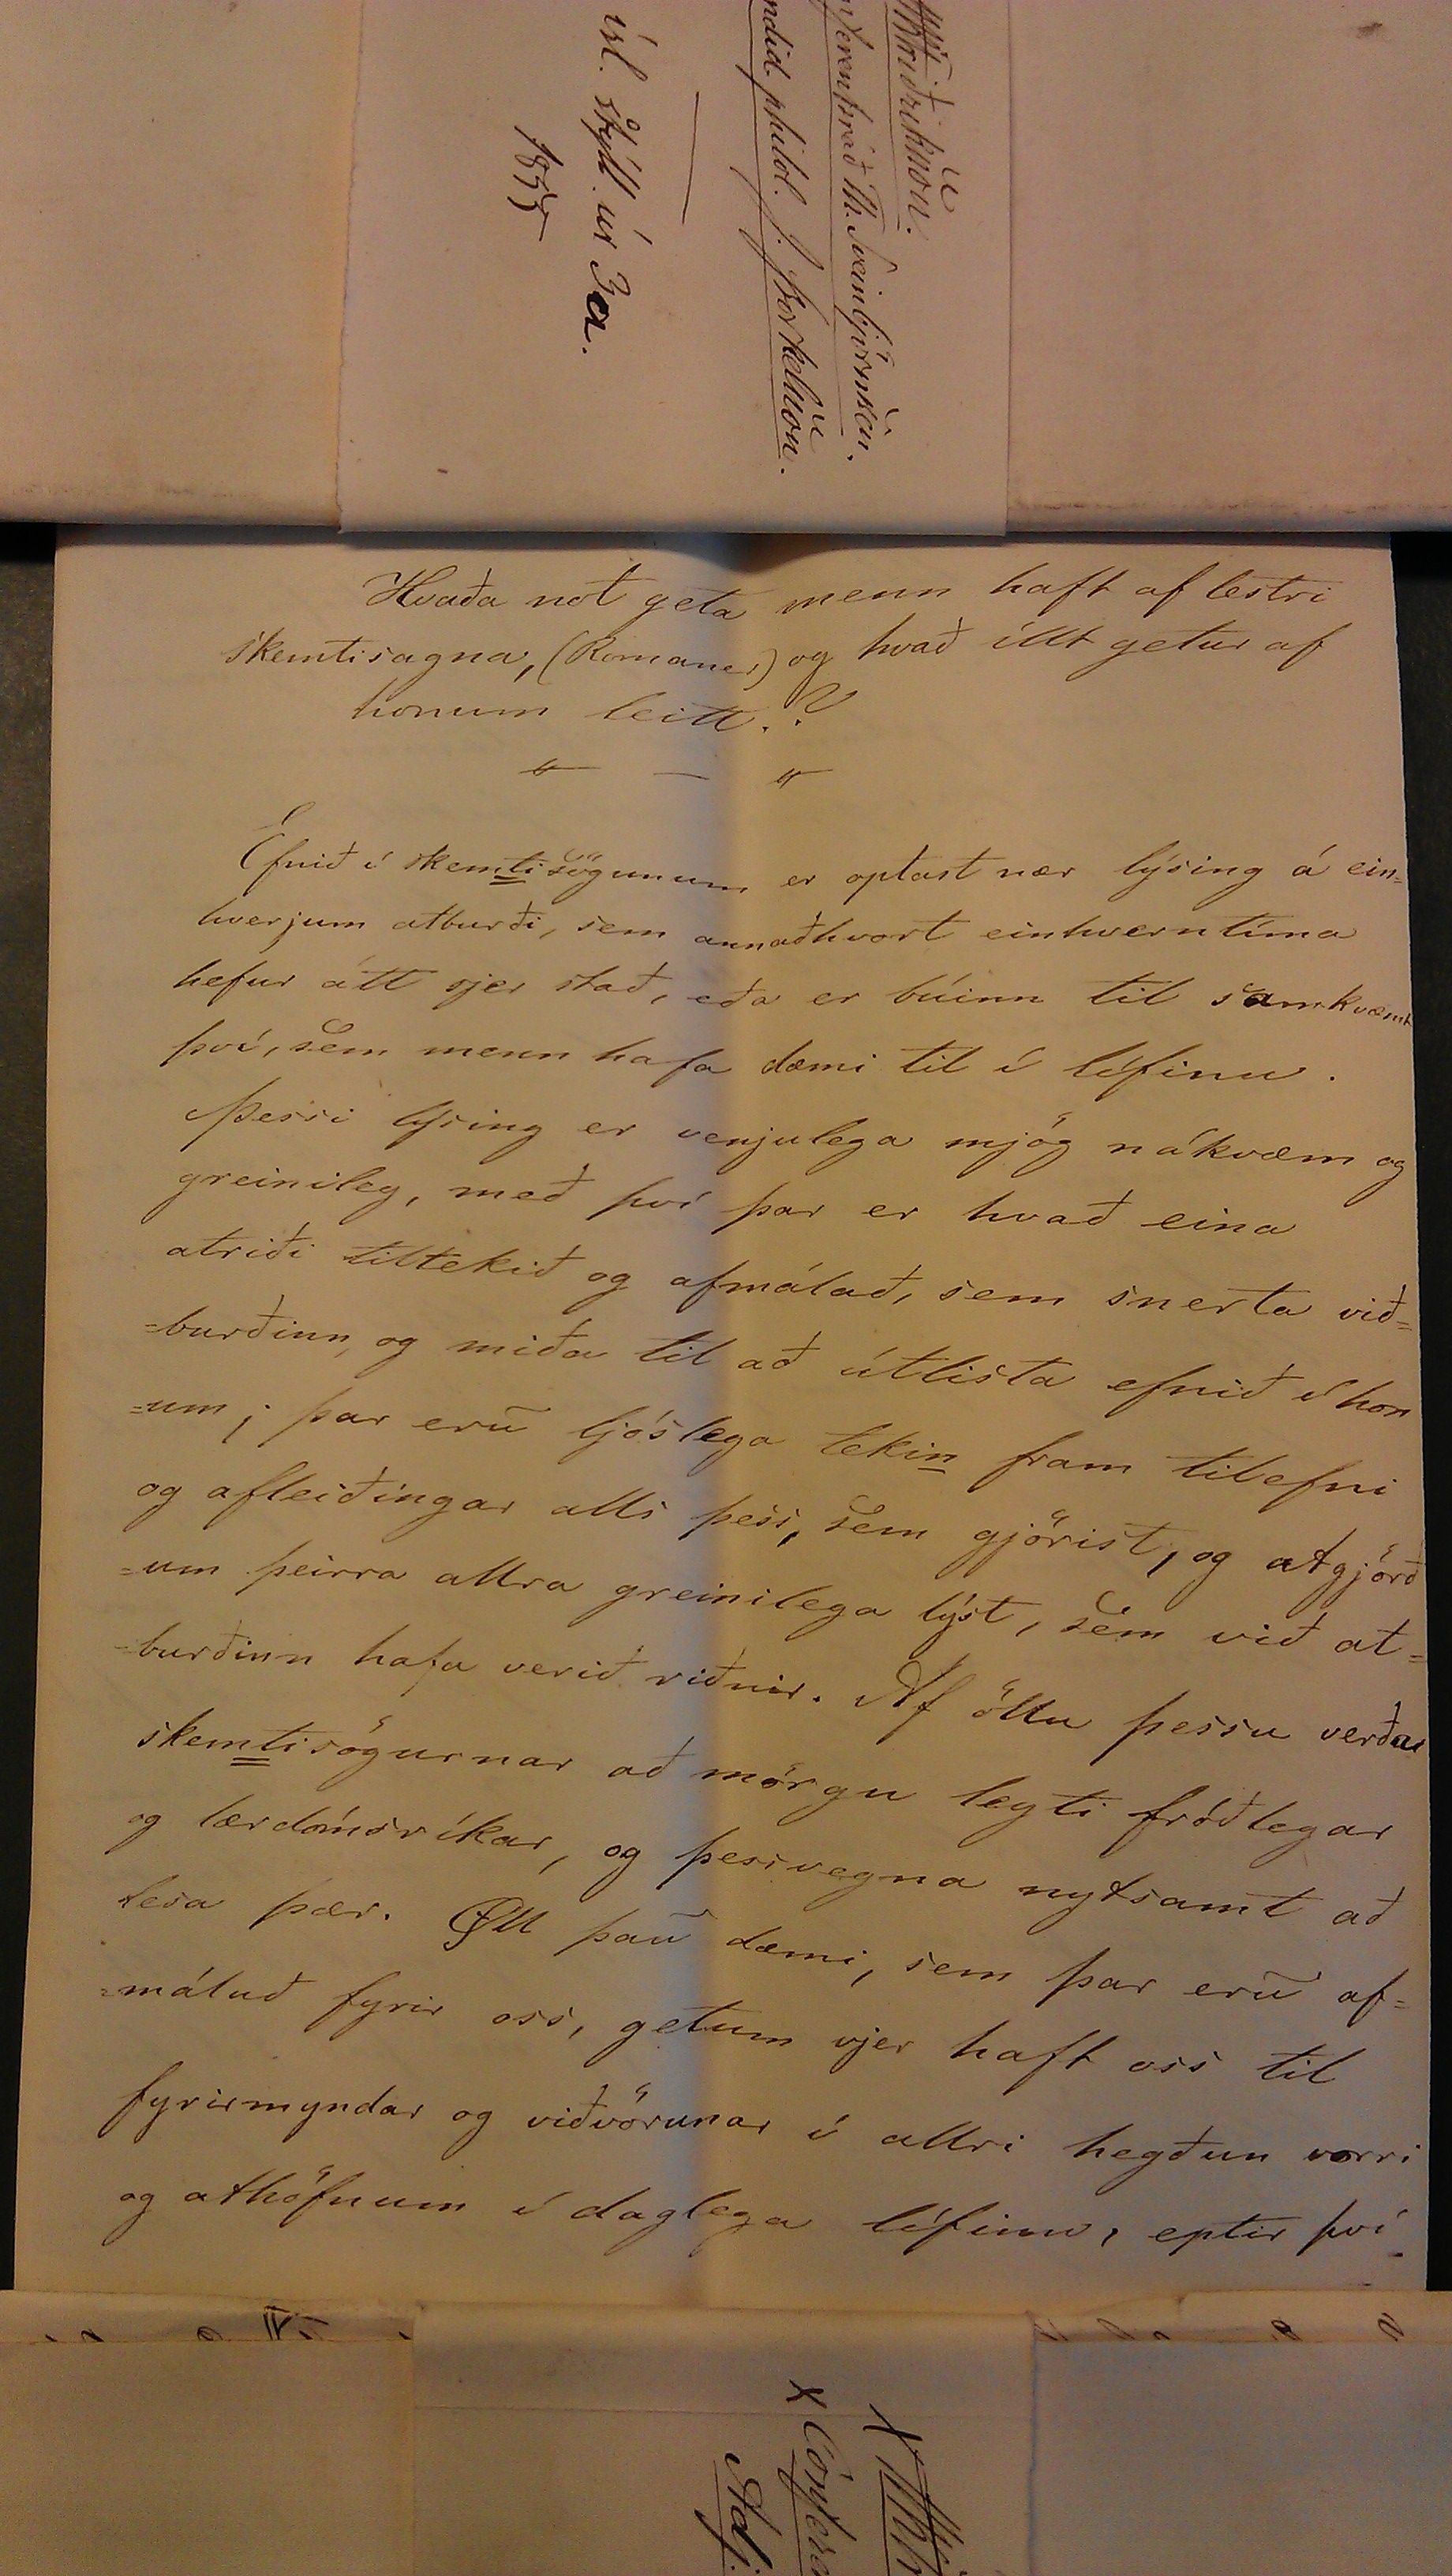 Th. Sveinbjörnsen.
philol. J. Þorkelsson.
ísl. stýll. úr 3a.
1855
Hvaða not geta menn haft af lestri
skemtisagna, (Romaner) og hvað illt getur af
honum leitt.?
Efnið í skemtisögunum er optast nær lýsing á ein=
hverjum atburði, sem annaðhvort einhverntíma
hefur átt sjer stað, eða er búinn til samkvæmt
því, sem menn hafa dæmi til í lífinu.
Þessi lýsing er venjulega mjög nákvæm og
greinileg, með því þar er hvað eina
atriði tiltekið og afmálað, sem snerta við=
=burðinn, og miða til að útlista efnið í hon
=um; þar eru ljóslega tekin fram tilefni
og afleiðingar alls þess, sem gjörist, og atgjörð
=um þeirra allra greinilega lýst, sem við at=
=burðinn hafa verið riðnir. Af öllu þessu verða
skemtisögurnar að mörgu leyti fróðlegar
og lærdómsríkar, og þessvegna nytsamt að
lesa þær. Öll þau dæmi, sem þar eru af=
=máluð fyrir oss, getum vjer haft oss til
fyrirmyndar og viðvörunar í allri hegðun vorri
og athöfnum í daglega lífinu, eptir því